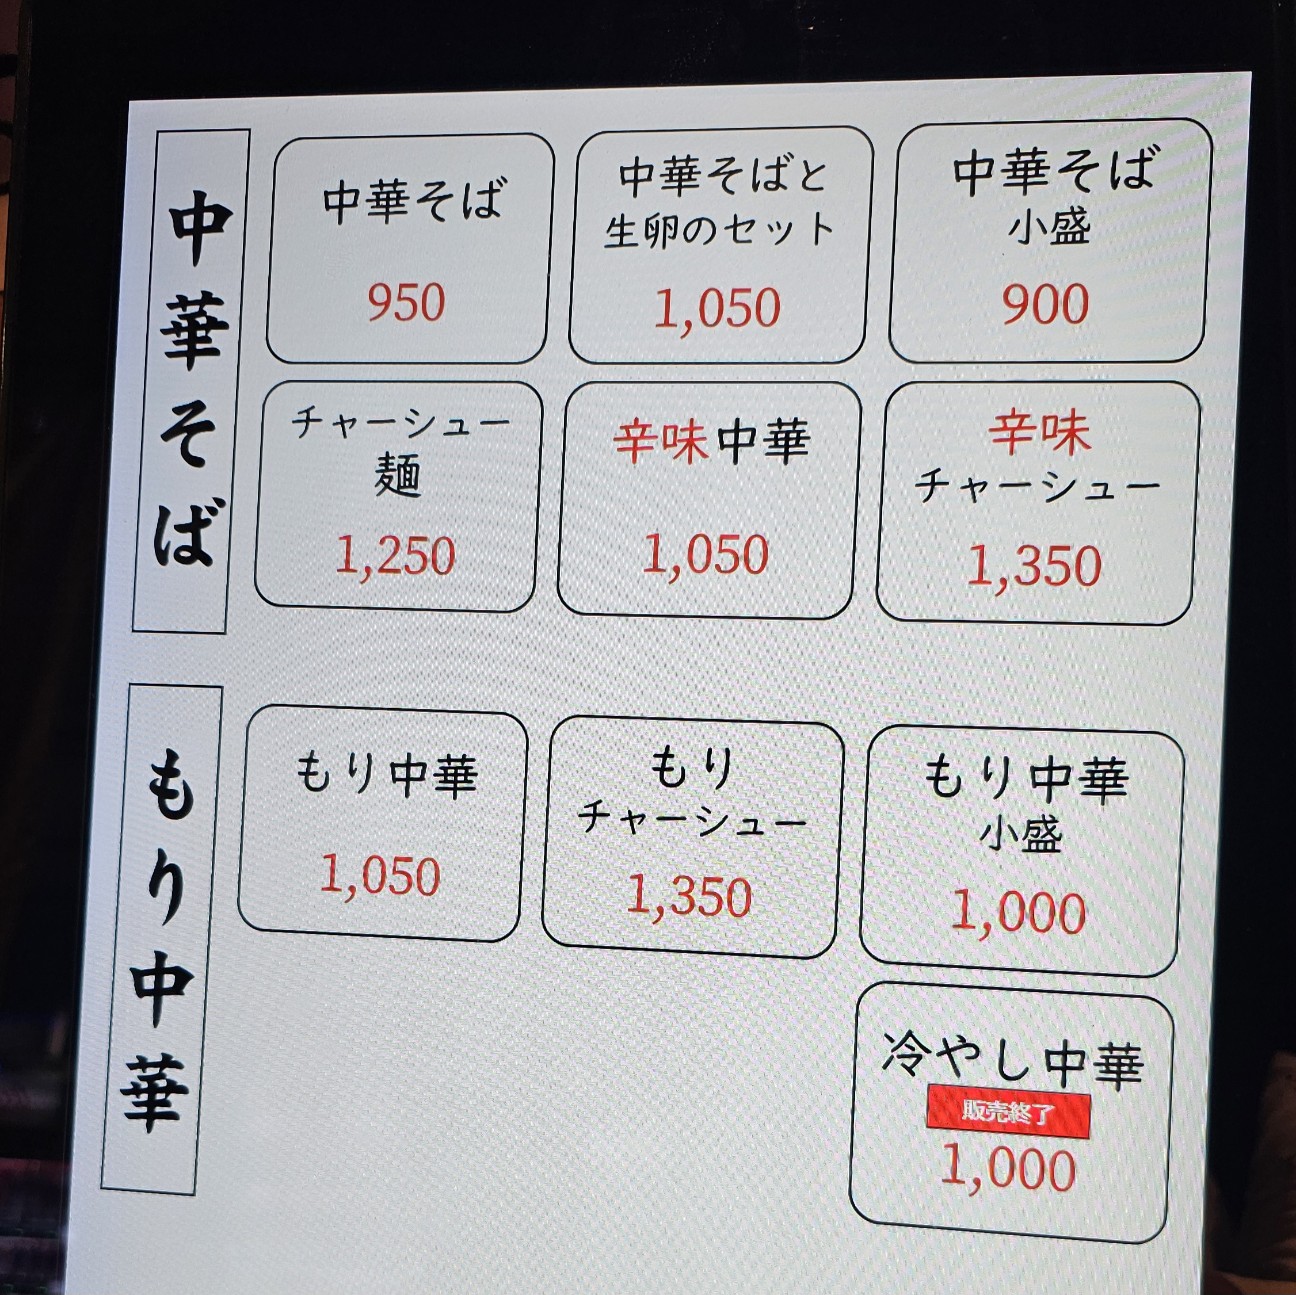 中華そば
中華そば
950
中華そばと
生卵のセット
1,050
中華そば
小盛
900
チャーシュー
麺
1,250
辛味中華
1,050
辛味
チャーシュー
1,350
もり中華
もり中華
1,050
もり
チャーシュー
1,350
もり中華
小盛
1,000
冷やし中華
販売終了
1,000